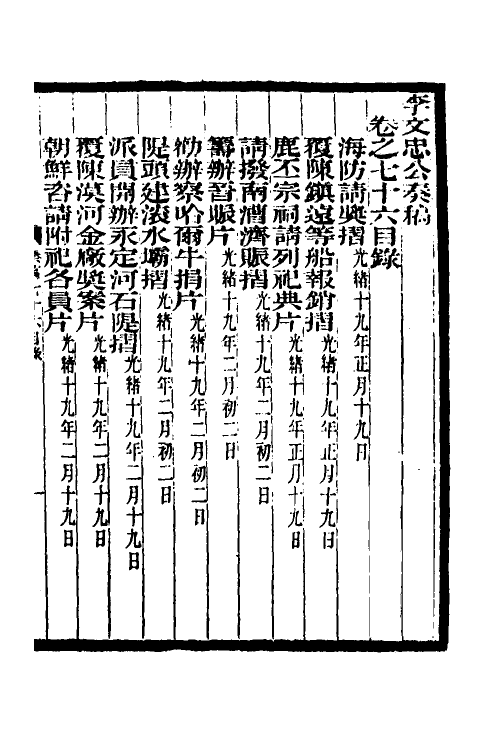 李文忠公奏稿
卷之七十六目錄
海防請奬摺光緒十九年正月十九日
覆陳鎮遠等船報銷摺光緒十九年正月十九日
鹿丕宗祠請列祀典片光緒十九年正月十九日
請撥南漕濟賑摺光緒十九年二月初二日
籌辦晉賑片光緒十九年二月初二日
勸辦察哈爾牛捐片光緒十九年二月初二日
隄頭建滾水壩摺光緒十九年二月初二日
派員開辦永定河石隄摺光緒十九年二月十九日
覆陳漠河金廠奬案片光緒十九年二月十九日
朝鮮咨請附祀各員片光緒十九年二月十九日